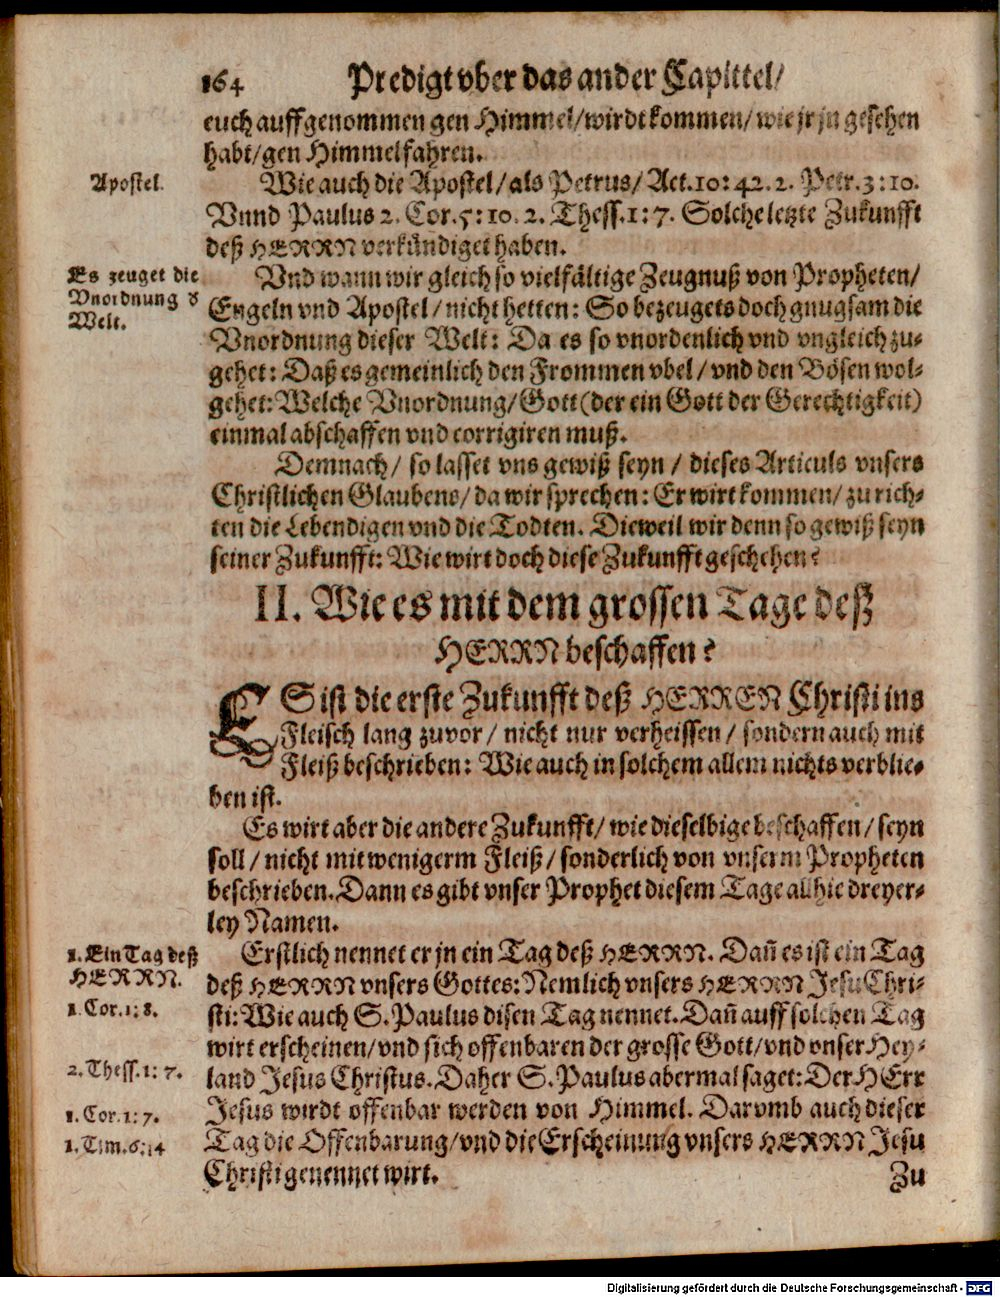 164 Predigt vber das ander Capittel/
euch auffgenommen gen Himmel/wirdt kommen/ wie jr jn gesehen
habt/gen Himmel fahren.
Apostel.
Wie auch die Apostel/als Petrus/Act.10:42.2. Petr.3:10.
Vnnd Paulus 2. Cor.5:10.2. Thess.1:7. Solche letzte Zukunfft
deß HERRN verkündiget haben.
Es zeuget die
Vnordnung d
Welt.
Vnd wann wir gleich so vielfältige Zeugnuß von Propheten/
Engeln vnd Apostel/nicht hetten: So bezeugets doch gnugsam die
Vnordnung dieser Welt: Da es so vnordenlich vnd vngleich zu-
gehet: Daß es gemeinlich den Frommen vbel/vnd den Bösen wol-
gehet: Welche Vnordnung/Gott (der ein Gott der Gerechtigkeit)
einmal abschaffen vnd corrigiren muß.
Demnach/ so lasset vns gewiß seyn / dieses Articuls vnsers
Christlichen Glaubens/da wir sprechen: Er wirt kommen/zu rich-
ten die Lebendigen vnd die Todten. Dieweil wir denn so gewiß seyn
seiner Zukunfft: Wie wirt doch diese Zukunfft geschehen?
II. Wie es mit dem grossen Tage deß
HERRN beschaffen?
ES ist die erste Zukunfft deß HERREN Christi ins
Fleisch lang zuvor/ nicht nur verheissen/ sondern auch mit
Fleiß beschrieben: Wie auch in solchem allem nichts verblie-
ben ist.
Es wirt aber die andere Zukunfft/wie dieselbige beschaffen/seyn
soll/nicht mit wenigerm Fleiß/sonderlich von vnserm Propheten
beschrieben. Dann es gibt vnser Prophet diesem Tage allhie dreyer-
ley Namen.
1. Ein Tag deß
HERRN.
1. Cor.1:8.
2. Thess.1:7.
1. Cor.1:7.
1. Tim.6:14
Erstlich nennet er jn ein Tag deß HERRN. Dañ es ist ein Tag
deß HERRN vnsers Gottes: Nemlich vnsers HERRN Jesu Chri-
sti: Wie auch S. Paulus disen Tag nennet. Dañ auff solchen Tag
wirt erscheinen/vnd sich offenbaren der grosse Gott/vnd vnser Hey-
land Jesus Christus. Daher S. Paulus abermal saget: Der HErr
Jesus wirdt offenbar werden von Himmel. Darvmb auch dieser
Tag die Offenbarung/vnd die Erscheinung vnsers HERRN Jesu
Christi genennet wirt.
Zu
Digitalisierung gefördert durch die Deutsche Forschungsgemeinschaft - DFG